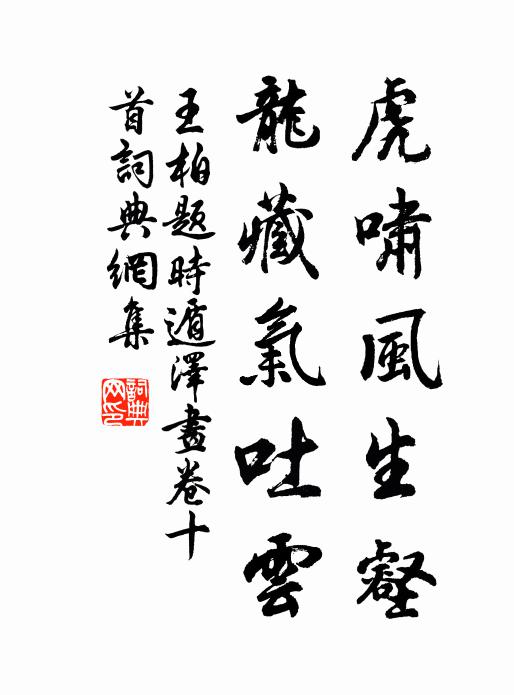 虎嘯風生壑
龍藏氣吐雲
王柏題時遁澤畫卷十
首詞典網集
詞典網印